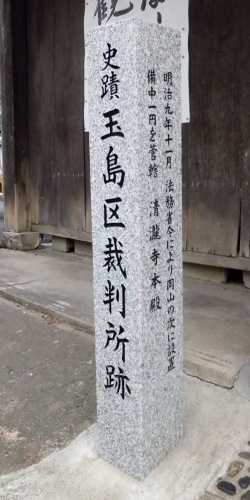 史蹟 玉島区裁判所跡
明治九年十一月 法務省令により岡山の次に設置
備中一円を管轄 清瀧寺本殿
観